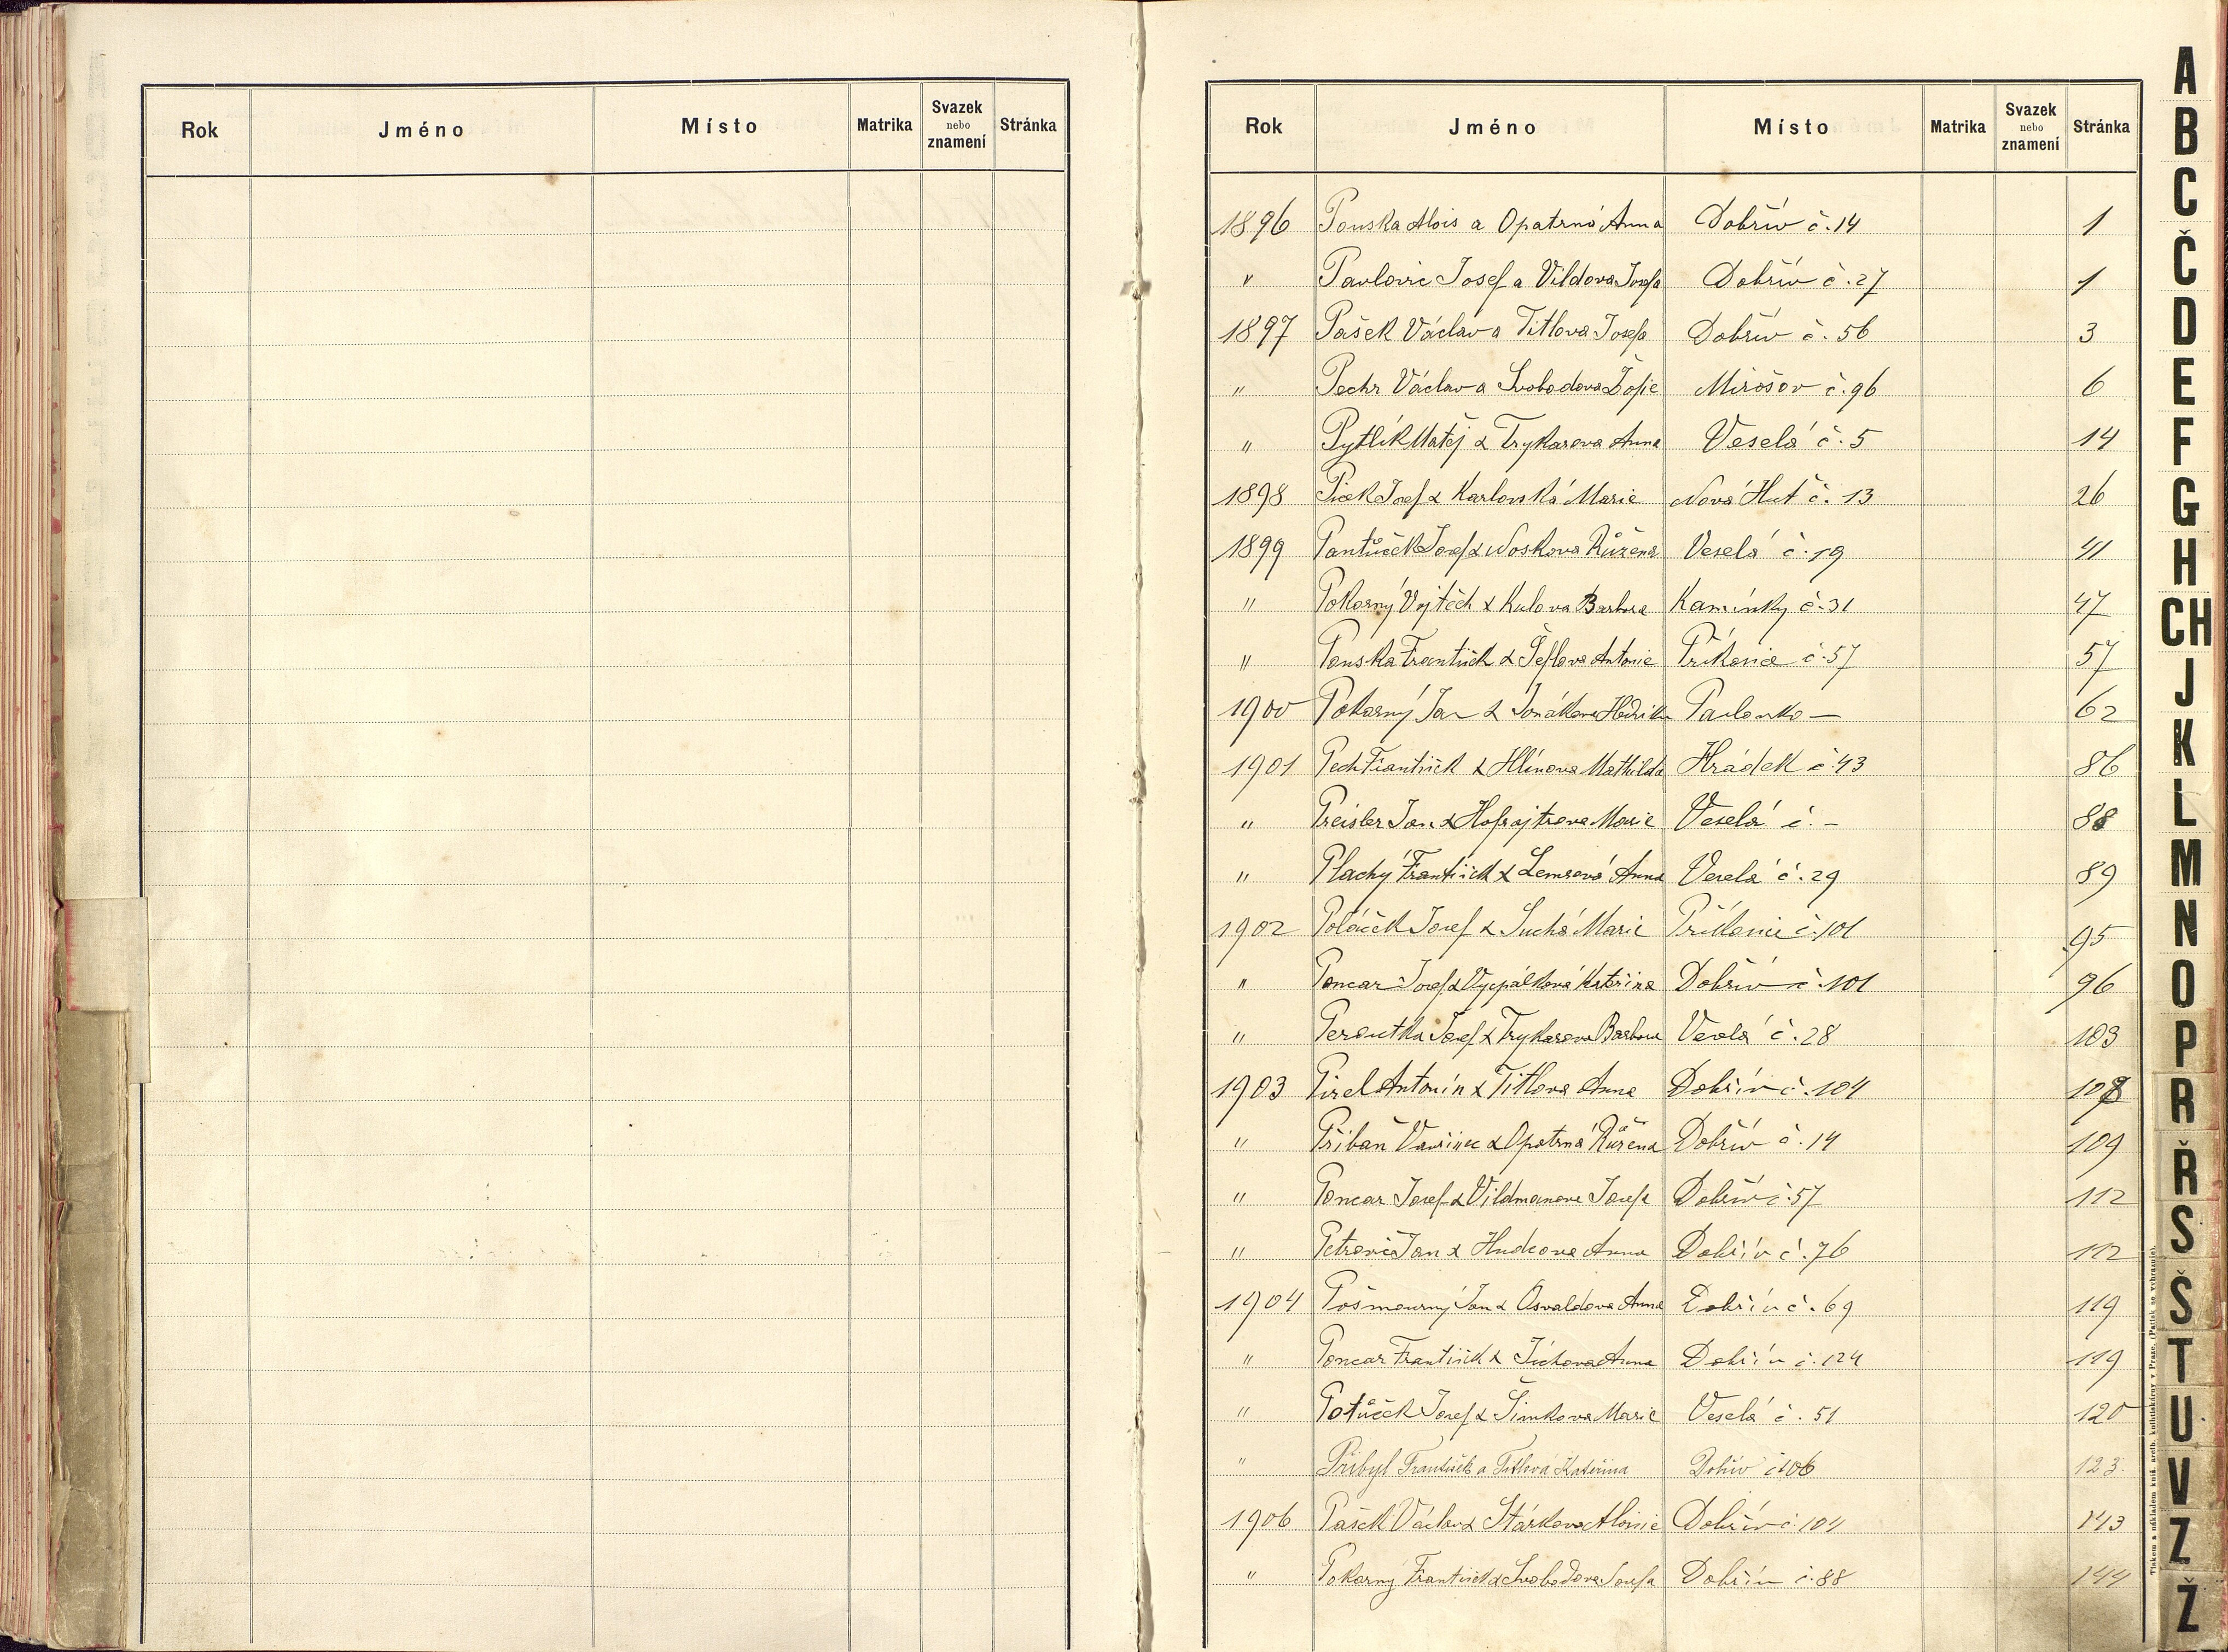 Rok Jméno Místo Matrika Svazek nebo znamení Stránka
Rok Jméno Místo Matrika Svazek nebo znamení Stránka
1896 Pouska Alois a Opatrná Anna Dobřív č. 14 1
" Pavlovic Josef a Vildova Josefa Dobřív č. 27 1
1897 Pašek Václav a Titlova Josefa Dobřív č. 56 3
" Pechr Václav a Svobodova Žofie Mirošov č. 96 6
" Pytlík Matěj & Trykarova Anna Veselá č. 5 14
1898 Josef & Karlovská Marie Nová Huť č. 13 26
1899 Pantůček Josef & Noskova Růžena Veselá č. 19 41
" Pokorný Vojtěch & Kulova Barbora Kamínky č. 31 47
" Pouska František & Šeflova Antonie Příkosice č. 57 57
1900 Pokorný Jan & Pavlovsko — 62
1901 Pech František & Hlínova Mathilda Hrádek č. 43 86
" Preisler Jan & Hofrajtrova Marie Veselá č. – 88
" Plachý František & Lemrová Anna Veselá č. 29 89
1902 Poláček Josef & Suchá Marie Příkosice č. 101 95
" Poncar Josef & Vycpálková Kateřina Dobřív č. 101 96
" Peroutka Josef & Trykarova Barbora Veselá č. 28 103
1903 Antonín & Titlova Anna Dobřív č. 104 108
" Přibaň Vavřinec & Opatrná Růžena Dobřív č. 14 109
" Poncar Josef & Vildmanova Josefa Dobřív č. 57 112
" Petrovič Jan & Hudcova Anna Dobřív č. 76 112
1904 Pošmourný Jan & Osvaldova Anna Dobřív č. 69 119
" Poncar František & Anna Dobřív č. 124 119
" Potůček Josef & Šimkova Marie Veselá č. 51 120
" Přibyl František a Titlová Kateřina Dobřív č 106 123.
1906 Pašek Václav & Stárkova Aloisie Dobřív č. 104 143
" Pokorný František & Svobodova Josefa Dobřív č. 88 144
A
B
C
Č
D
E
F
G
H
CH
J
K
L
M
N
O
P
R
Ř
S
Š
T
U
V
Z
Ž